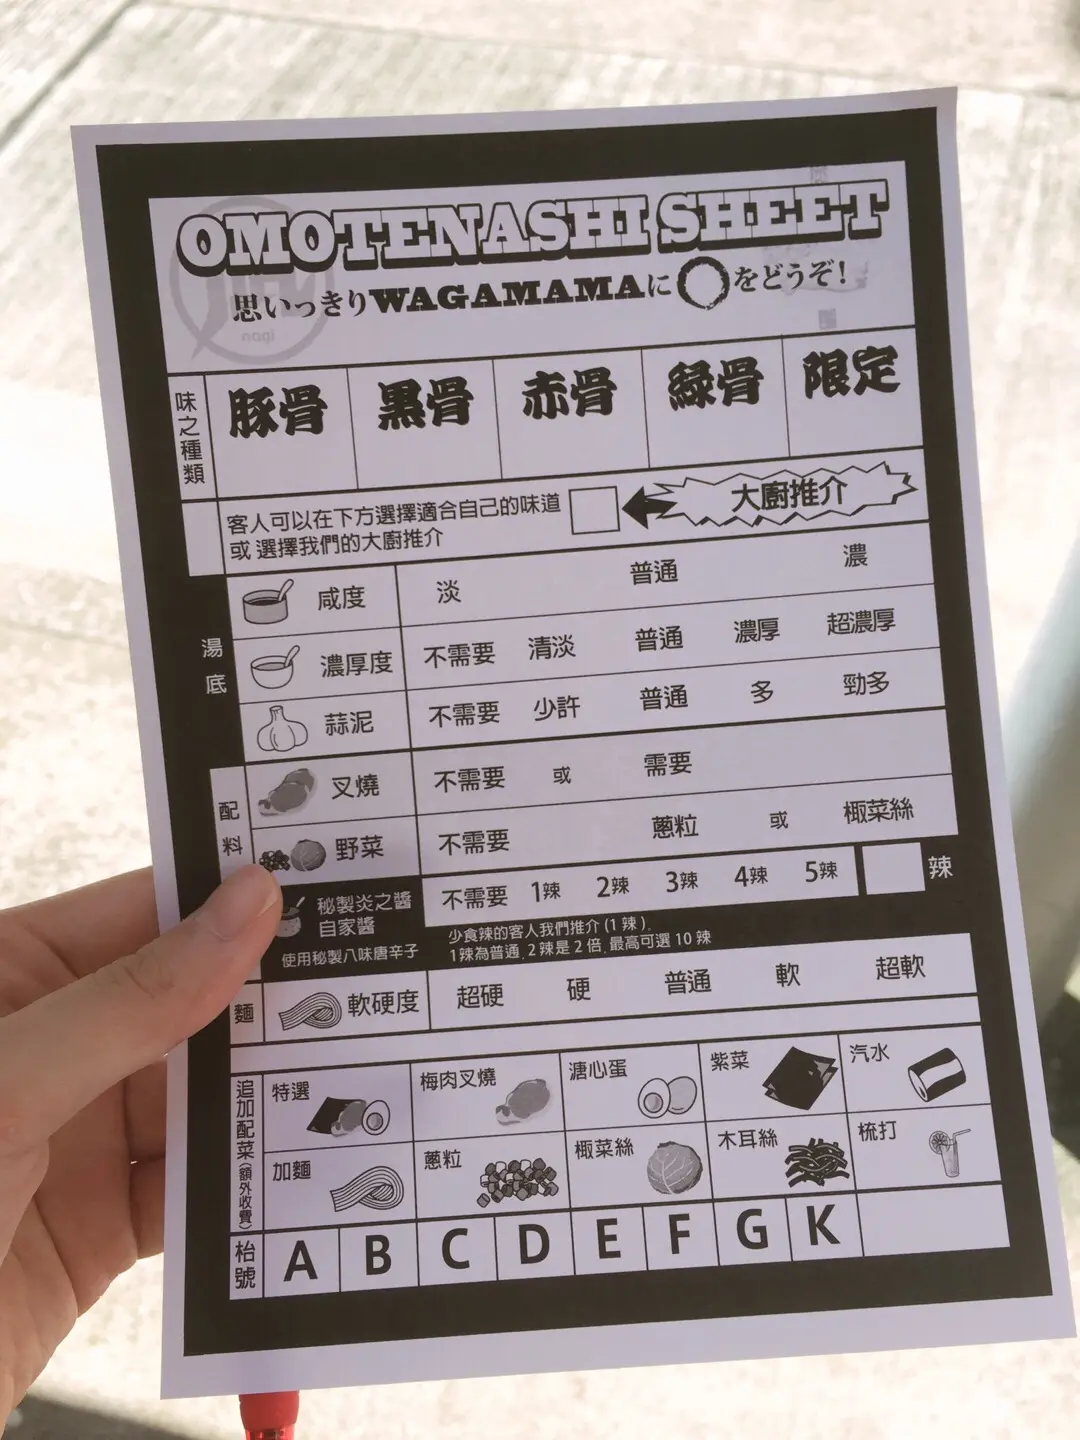 OMOTENASHI SHEET
思いっきりWAGAMAMAに〇をどうぞ!
nagi
味之種類
豚骨 黒骨 赤骨 緑骨 限定
客人可以在下方選擇適合自己的味道
或 選擇我們的大廚推介
大廚推介
湯底
咸度 淡 普通 濃
濃厚度 不需要 清淡 普通 濃厚 超濃厚
蒜泥 不需要 少許 普通 多 勁多
配料
叉燒 不需要 或 需要
野菜 不需要 蔥粒 或 椰菜絲
秘製炎之醬
自家醬
使用秘製八味唐辛子
不需要 1辣 2辣 3辣 4辣 5辣 辣
少食辣的客人我們推介 (1 辣 ).
1辣為普通, 2 辣是 2 倍, 最高可選 10 辣
麵
軟硬度 超硬 硬 普通 軟 超軟
追加配菜(額外收費)
特選 梅肉叉燒 溏心蛋 紫菜 汽水
加麵 蔥粒 椰菜絲 木耳絲 梳打
枱號
A B C D E F G K